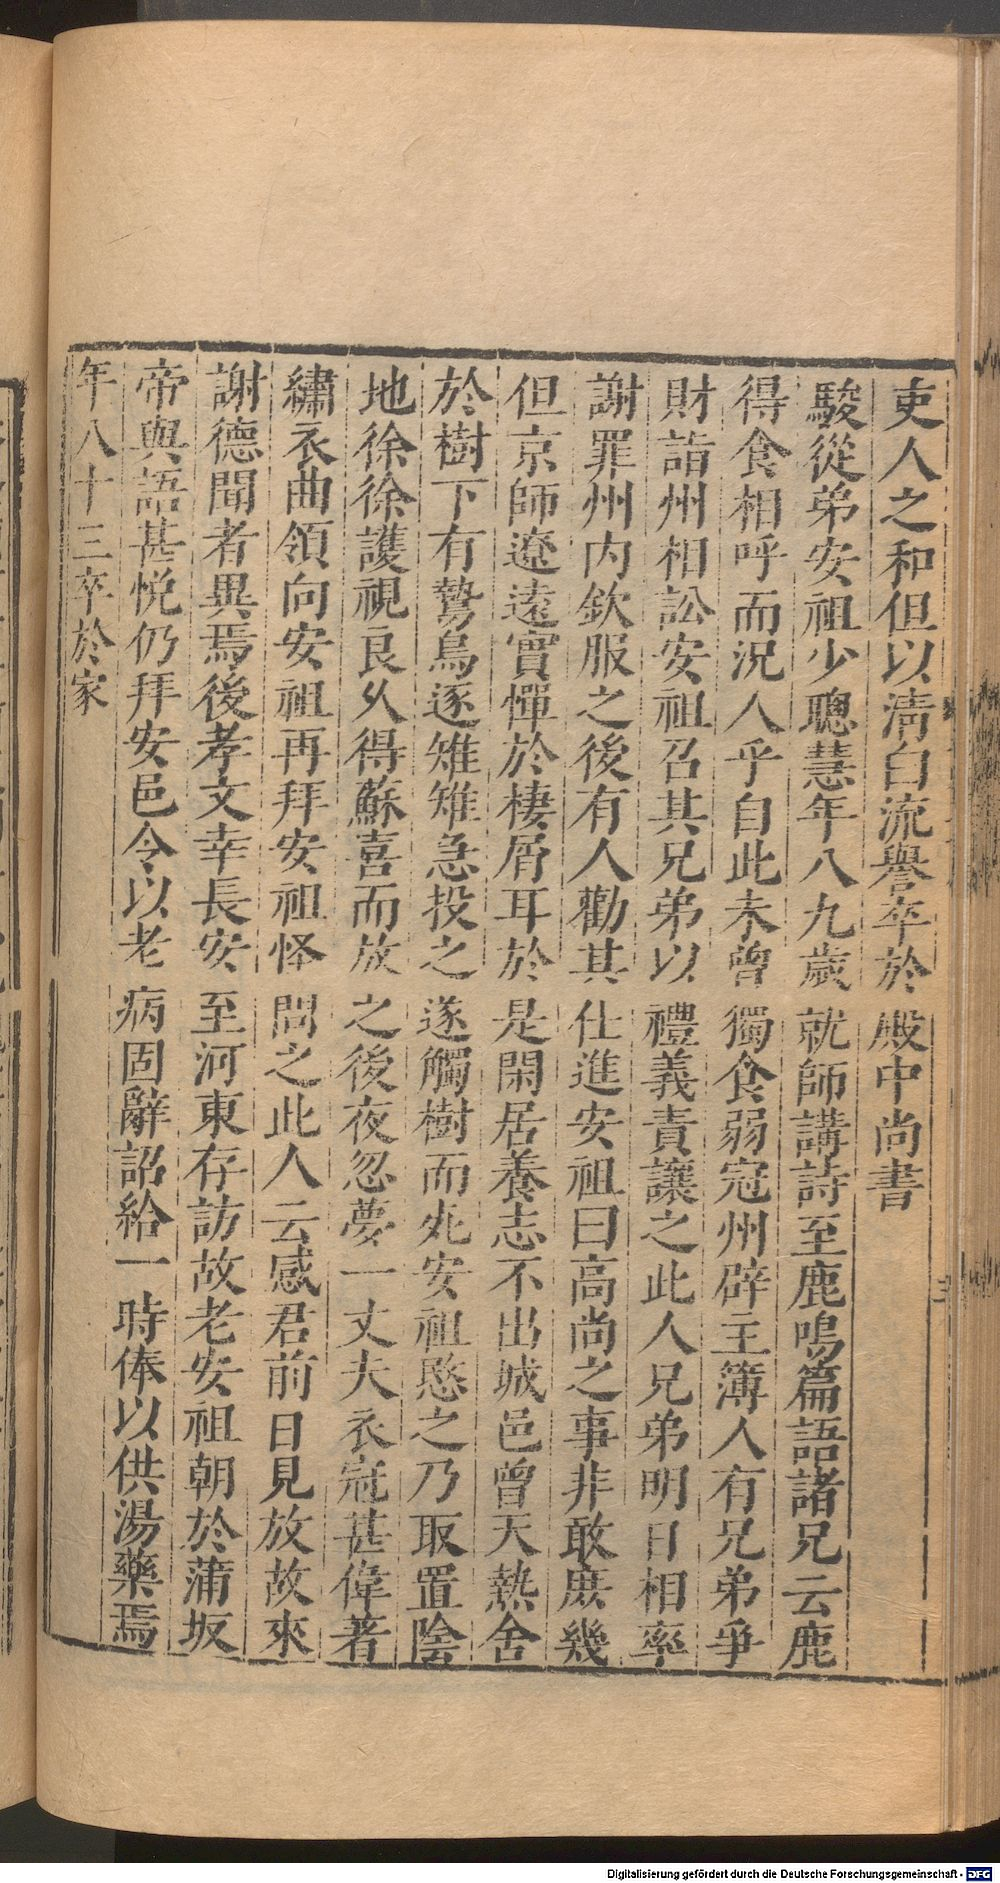 吏人之和但以清白流譽卒於殿中尚書
駿從弟安祖少聰慧年八九歲就師講詩至鹿鳴篇語諸兄云鹿
得食相呼而況人乎自此未曾獨食弱冠州辟主簿人有兄弟爭
財詣州相訟安祖召其兄弟以禮義責讓之此人兄弟明日相率
謝罪州內欽服之後有人勸其仕進安祖曰高尚之事非敢庶幾
但京師遼遠實憚於棲屑耳於是閑居養志不出城邑曾天熱舍
於樹下有鷙鳥逐雉雉急投之遂觸樹而死安祖愍之乃取置陰
地徐徐護視良久得蘇喜而放之後夜忽夢一丈夫衣冠甚偉著
繡衣曲領向安祖再拜安祖怪問之此人云感君前日見放故來
謝德聞者異焉後孝文幸長安至河東存訪故老安祖朝於蒲坂
帝與語甚悅仍拜安邑令以老病固辭詔給一時俸以供湯藥焉
年八十三卒於家
Digitalisierung gefördert durch die Deutsche Forschungsgemeinschaft - DFG